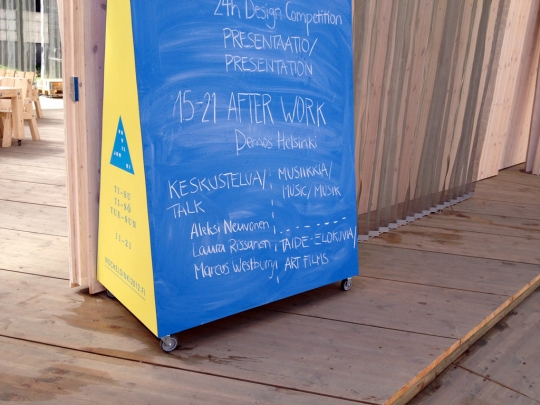 24h Design Competition
PRESENTAATIO/
PRESENTATION
15-21 AFTER WORK
Demos Helsinki
KESKUSTELUA/
TALK
Aleksi Neuvonen
Laura Rissanen
Marcus Westbury
MUSIIKKIA/
MUSIC/MUSIK
TAIDE-ELOKUVIA/
ART FILMS
TI-TU
TI-TO
TUE-SUN
11-21